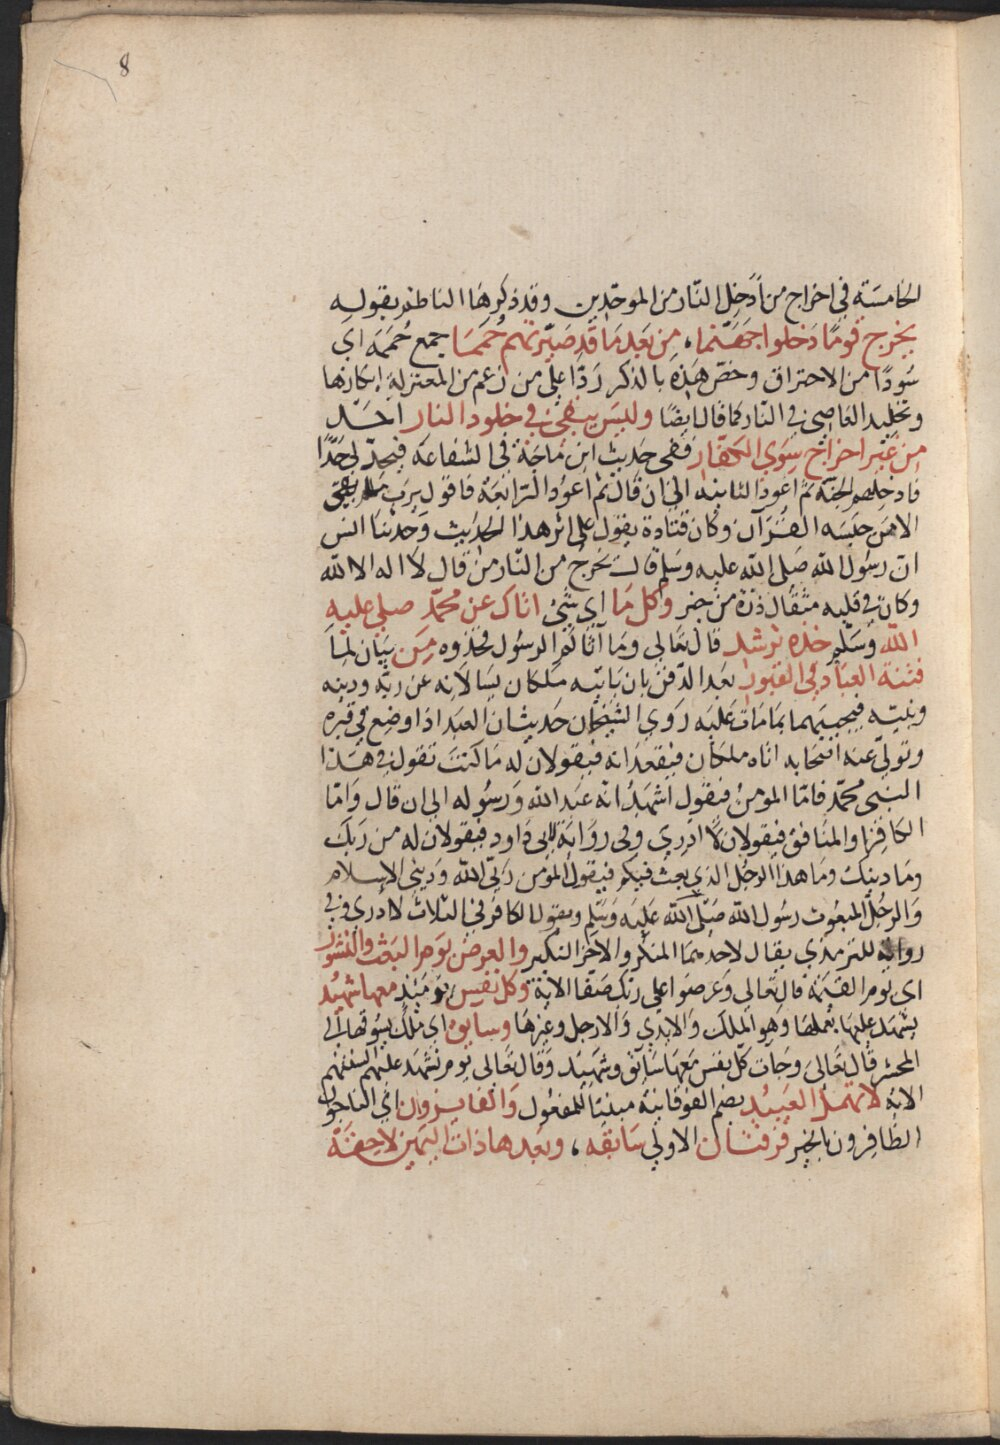 8
الخامسة في اخراج من أدخل النار من الموحدين وقد ذكرها الناظم بقوله
يخرج قوما دخلوا جهنما، من بعد ما قد صيرتهم حمما جمع حممة اي
سودا من الاحتراق وخص هذه بالذكر ردا على من زعم من المعتزلة إنكارها
وتخليد العاصي في النار كما قال ايضا وليس يبقى في خلود النار احد
من غير اخراج سوى الكفار ففي حديث ابن ماجة في الشفاعة فيحد لي حدا
فادخلهم الجنة ثم اعود الثانية الى ان قال ثم اعود الرابعة فاقول يرب ما بقى
الا من حبسه القرآن وكان قتادة يقول على اثر هذا الحديث وحدثنا انس
ان رسول الله صلى الله عليه وسلم قال يخرج من النار من قال لا اله الا الله
وكان في قلبه مثقال ذرة من خير وكل ما اي شئ اتاك عن محمد صلى عليه
الله وسلم خذه ترشد قال تعالى وما آتاكم الرسول فخذوه من بيان لما
فتنة العباد في القبور بعد الدفن بان ياتيه ملكان يسالانه عن ربه ودينه
ونبيه فيجيبهما بما مات عليه روى الشيخان حديث ان العبد اذا وضع في قبره
وتولى عنه اصحابه اتاه ملكان فيقعدانه فيقولان له ما كنت تقول في هذا
النبي محمد فاما المؤمن فيقول اشهد انه عبد الله ورسوله الى ان قال واما
الكافر او المنافق فيقولان لا ادري وفي رواية لابي داود فيقولان له من ربك
وما دينك وما هذا الرجل الذي بعث فيكم فيقول المؤمن ربي الله وديني الاسلام
والرجل المبعوث رسول الله صلى الله عليه وسلم ويقول الكافر في الثلاث لا ادري وفي
رواية للترمذي يقال لاحدهما المنكر والاخر النكير والعرض يوم البعث والنشور
اي يوم القيمة قال تعالى وعرضوا على ربك صفا الاية وكل نفس يومئذ معها شهيد
يشهد عليها بعملها وهو الملك والايدي والارجل وغيرها وسايق اي ملك يسوقها الى
المحشر قال تعالى وجات كل نفس معها سائق وشهيد وقال تعالى يوم تشهد عليهم السنتهم
الاية لا تهمل العبيد بضم الفوقانية مبنيا للمفعول والفايزون اي الناجون
الظافرون بالخير فرقتان الاولى سابقه، وبعدها ذات اليمين لاحقة